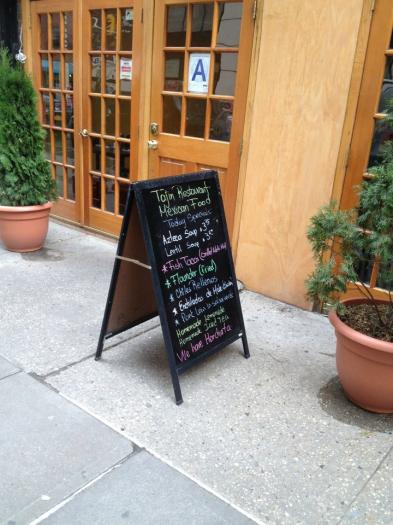 A
Tajin Restaurant
Mexican Food
Today Specials
Azteca Soup $
Lentil Soup $
* Fish Tacos (Grilled
* Flounder (Fried)
* Chiles Rellenos
* Enchiladas de Mole
* Pork Loin in Salsa verde
Homemade Lemonade
Homemade Iced Tea
* We have Horchata